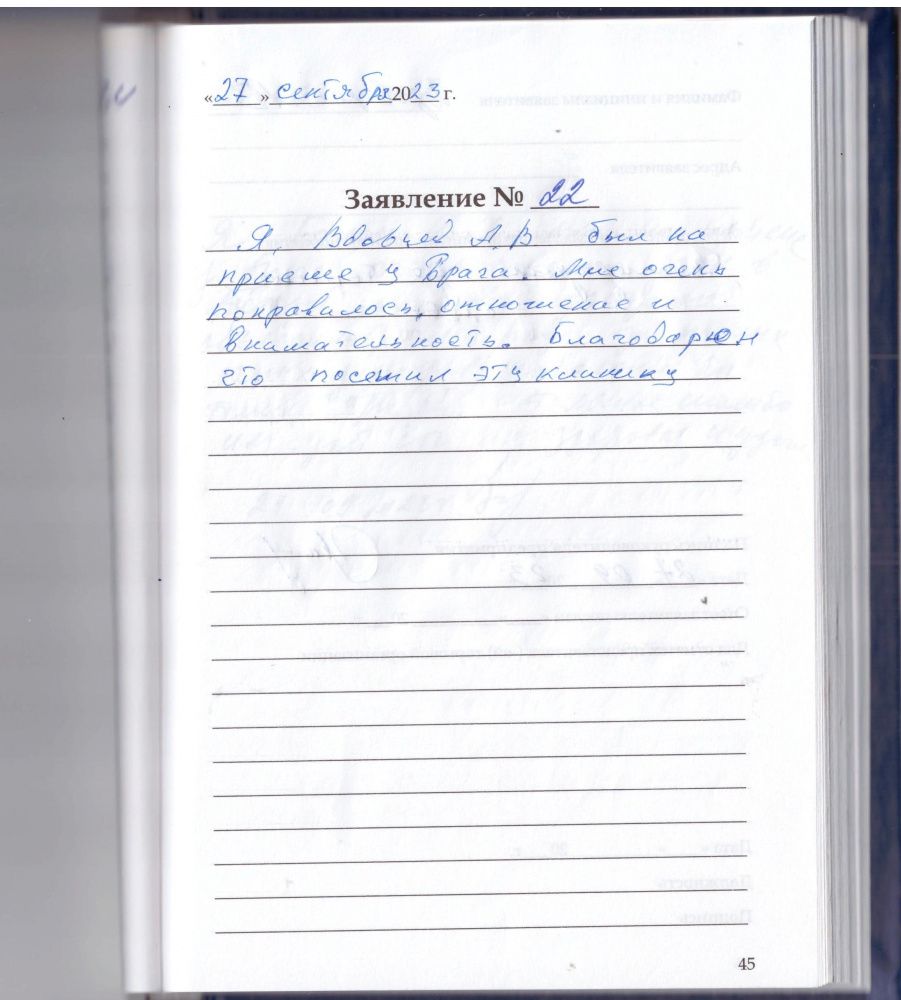 «27» сентября 2023 г.
Заявление № 22
Я, А.В был на
приеме у Врача. Мне очень
понравилось, отношение и
внимательность. Благодарен
что посетил эту клинику
45